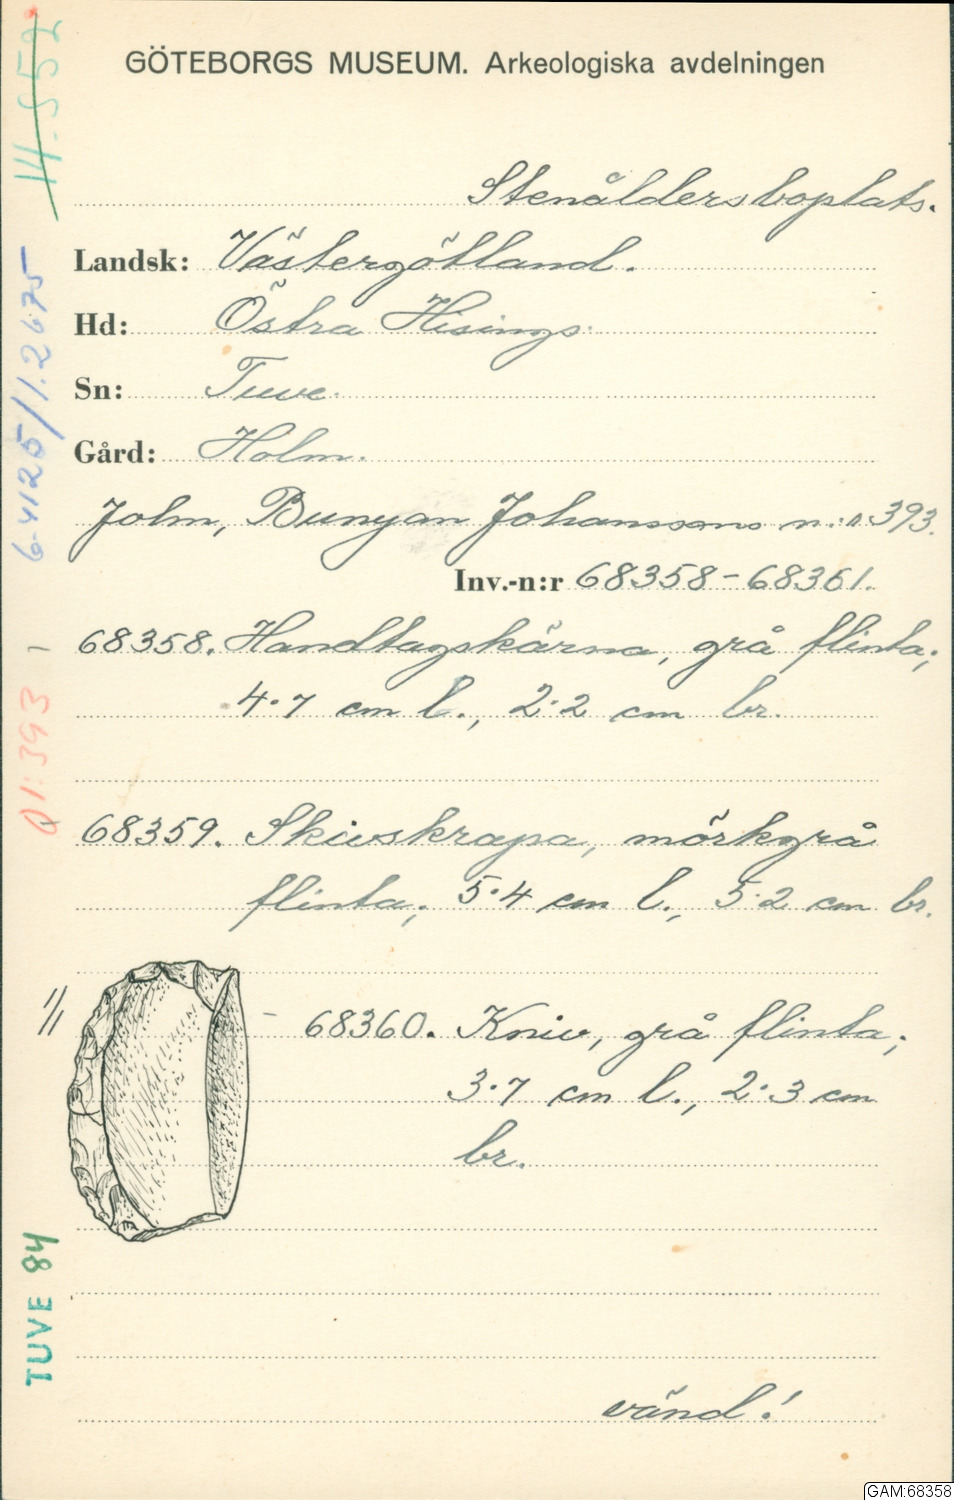 GÖTEBORGS MUSEUM. Arkeologiska avdelningen
Stenåldersboplats.
Landsk: Västergötland.
Hd: Östra Hisings
Sn: Tuve.
Gård: Holm.
John, Bunyan Johanssons n:r 393.
Inv.-n:r 68358-68361.
68358. Handtagskärna, grå flinta;
4.7 cm l., 2.2 cm br.
68359. Skivskrapa, mörkgrå
flinta; 5.4 cm l., 5.2 cm br.
68360. Kniv, grå flinta;
3.7 cm l., 2.3 cm
br.
vänd!
TUVE 84
01:393 -
6-4125/1.2675
14.552
GAM:68358